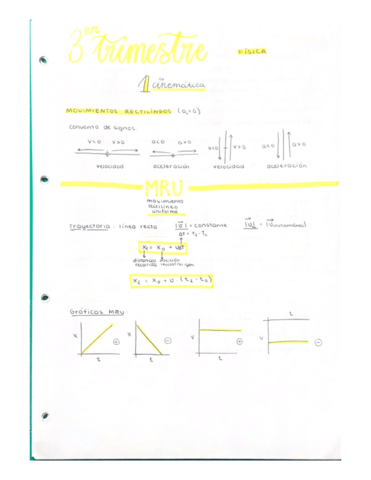 3er trimestre
FÍSICA
1 cinemática
MOVIMIENTOS RECTILÍNEOS (an=0)
convenio de signos:
v<0 v>0 a<0 a>0 v<0 v>0 a<0 a>0
velocidad aceleración velocidad aceleración
MRU
movimiento
rectilíneo
uniforme
Trayectoria: línea recta |v| = constante
Δt = t2 - t0
xf = x0 + vΔt
distancia
xf = x0 + v · (tf - t0)
Gráficos MRU:
x x v v t
t t t
+ - + -